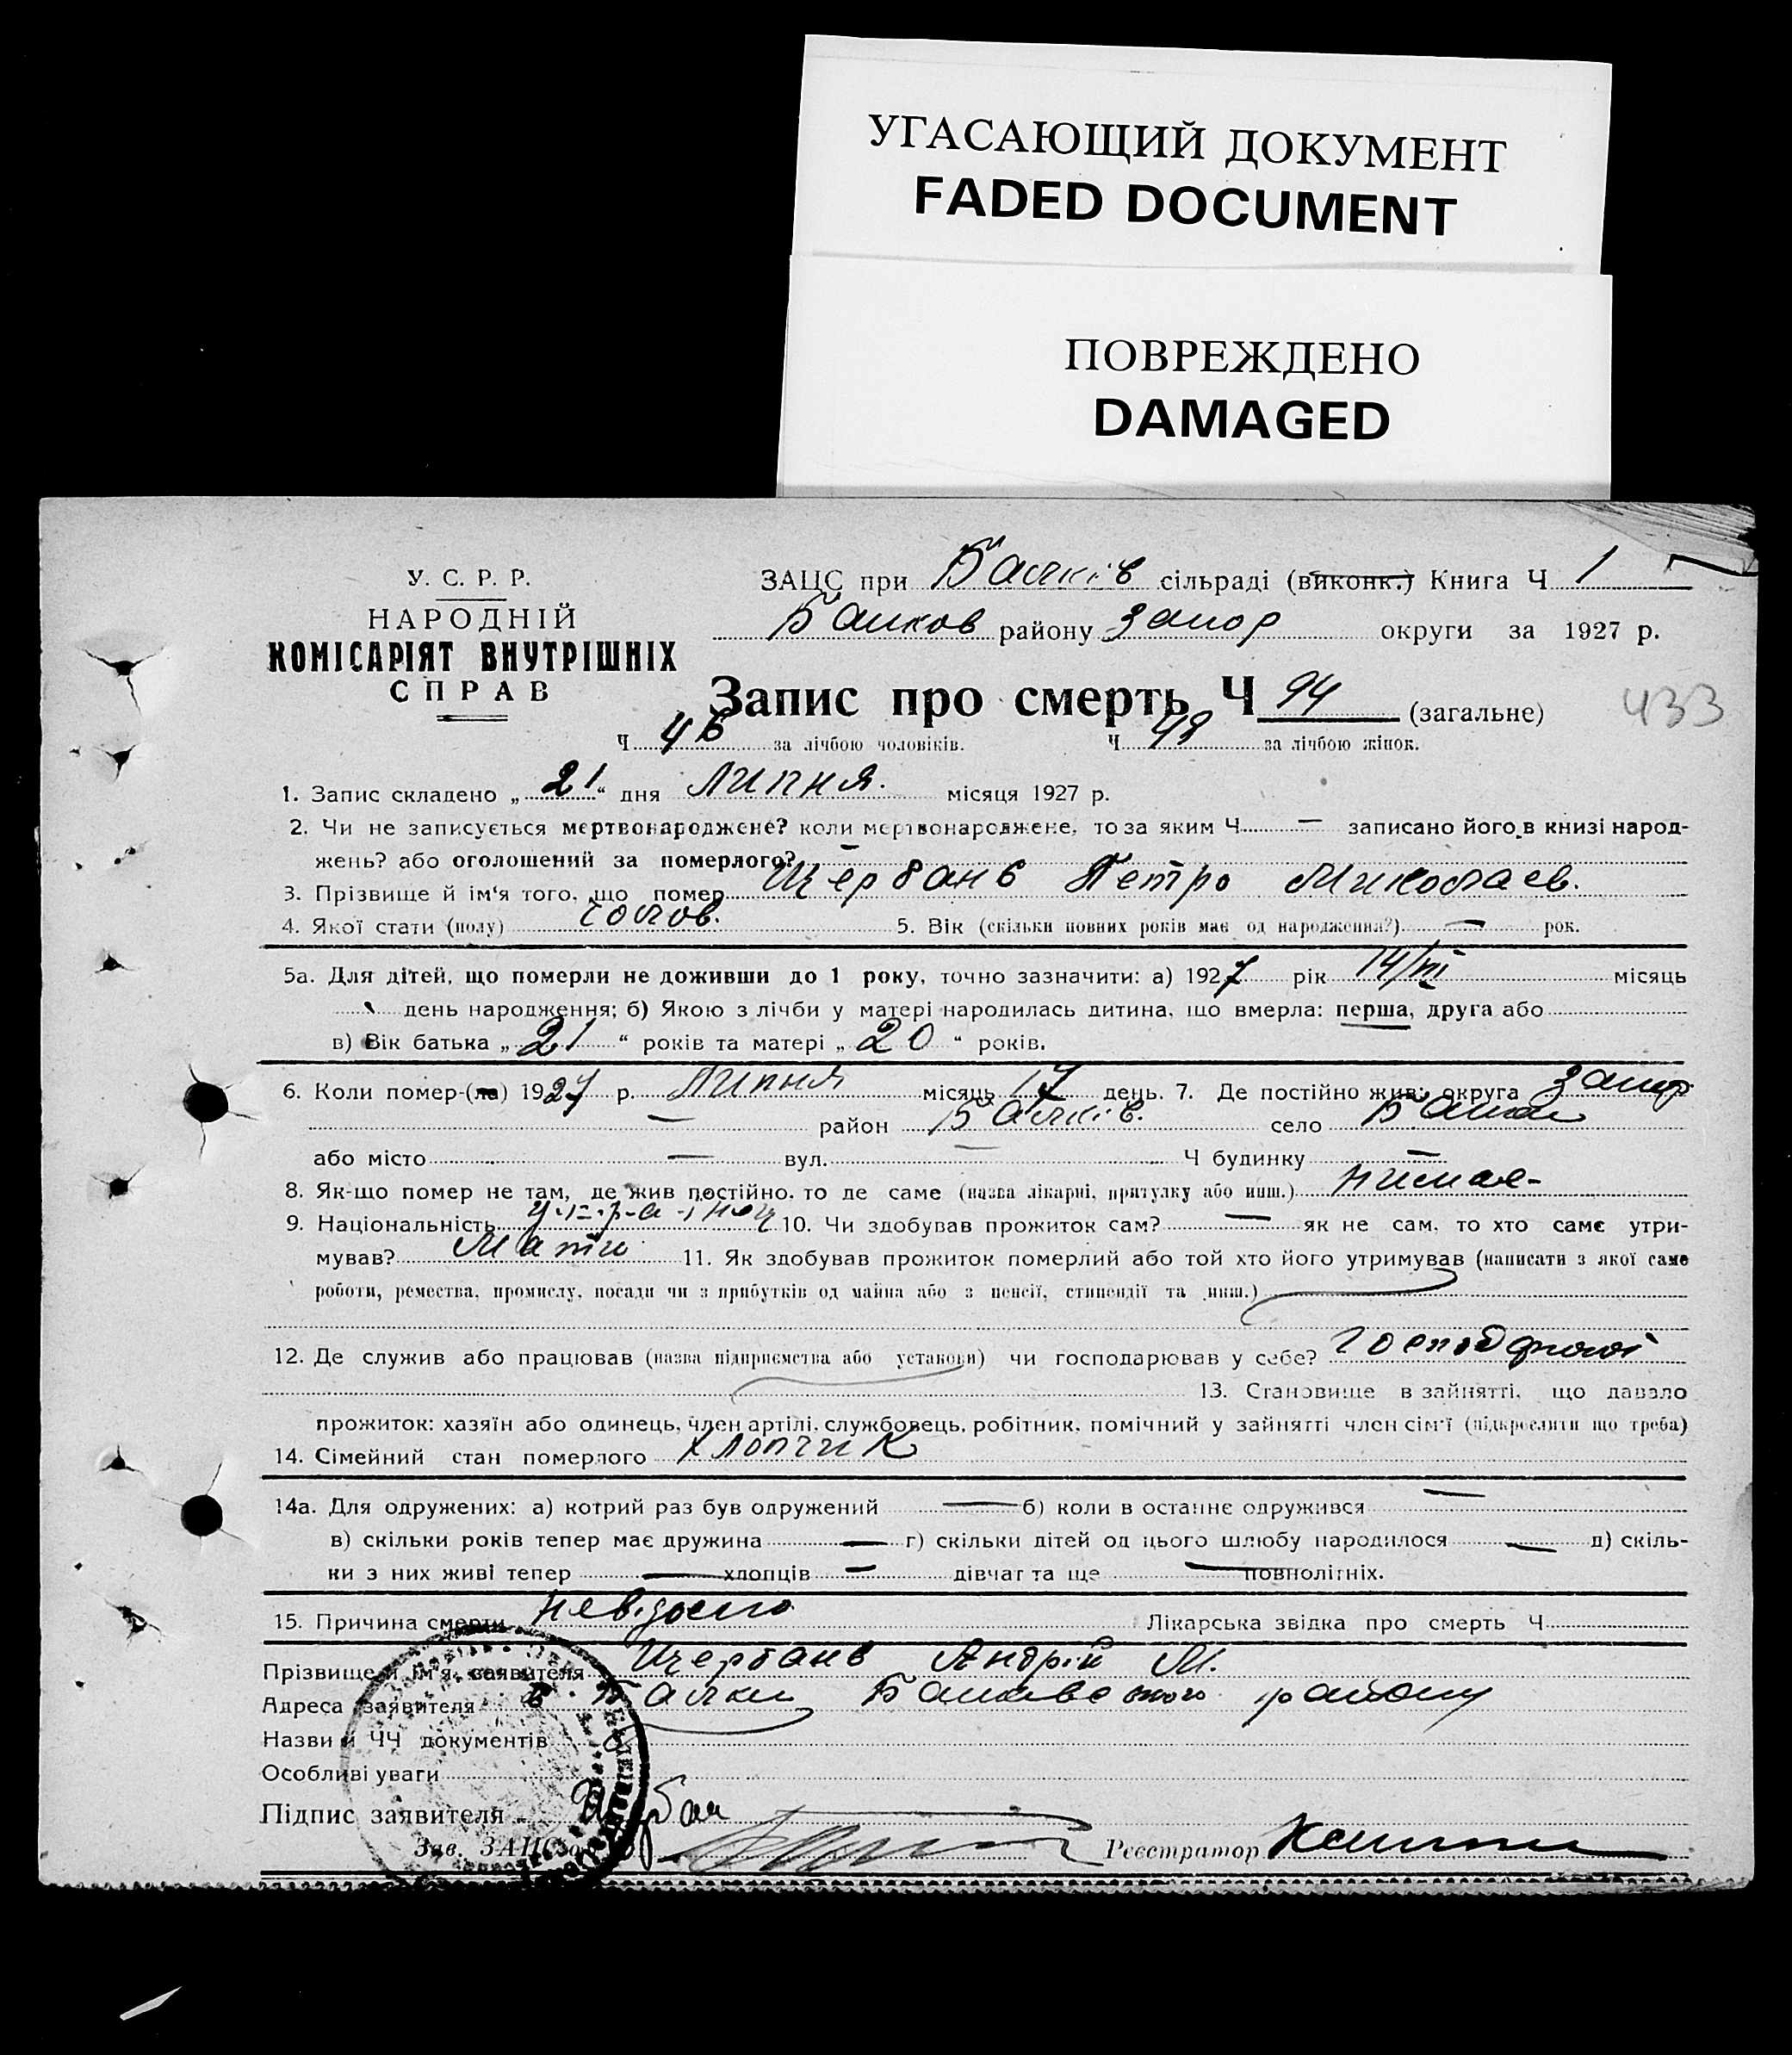 УГАСАЮЩИЙ ДОКУМЕНТ
FADED DOCUMENT
ПОВРЕЖДЕНО
DAMAGED
У. С. Р. Р.
НАРОДНІЙ
КОМІСАРІЯТ ВНУТРІШНІХ
СПРАВ
ЗАЦС при Балків сільраді (виконк.) Книга Ч 1
Балков району Запор округи за 1927 р.
Запис про смерть Ч 94 (загальне) 433
Ч 46 за лічбою чоловіків. Ч 48 за лічбою жінок.
1. Запис складено „21“ дня Липня. місяця 1927 р.
2. Чи не записується мертвонароджене? коли мертвонароджене, то за яким Ч — записано його в книзі народ-
жень? або оголошений за померлого? —
3. Прізвище й ім‘я того, що помер Щербанв Петро Миколаев.
4. Якої стати (полу) чолов. 5. Вік (скільки повних років має од народження?) — рок.
5а. Для дітей, що померли не доживши до 1 року, точно зазначити: а) 1927 рік 14/III місяць
день народження; б) Якою з лічби у матері народилась дитина, що вмерла: перша, друга або
в) Вік батька „21“ років та матері „20“ років.
6. Коли помер-(ла) 1927 р. Липня місяць 17 день. 7. Де постійно жив: округа Запор
— район Балків. село Балки
або місто — вул. — Ч будинку —
8. Як-що помер не там, де жив постійно, то де саме (назва лікарні, притулку або инш.) нимає-
9. Національність українец 10. Чи здобував прожиток сам? — як не сам, то хто саме утри-
мував? Мати 11. Як здобував прожиток померлий або той хто його утримував (написати з якої саме
роботи, ремества, промислу, посади чи з прибутків од майна або з пенсії, стипендії та инш.)
12. Де служив або працював (назва підприємства або установи) чи господарював у себе?
13. Становище в зайнятті, що давало
прожиток: хазяїн або одинець, член артілі, службовець, робітник, помічний у зайнятті член сім‘ї (підкреслити що треба)
14. Сімейний стан померлого хлопчик
14а. Для одружених: а) котрий раз був одружений — б) коли в останнє одружився —
в) скільки років тепер має дружина — г) скільки дітей од цього шлюбу народилося — д) скіль-
ки з них живі тепер — хлопців — дівчат та ще — повнолітніх.
15. Причина смерти невідомо Лікарська звідка про смерть Ч
Прізвище й ім‘я заявителя Щербанв Андрій М.
Адреса заявителя с. Балки Балківського району
Назви й ЧЧ документів
Особливі уваги
Підпис заявителя Щербан
Зав. ЗАЦС‘ом Реєстратор